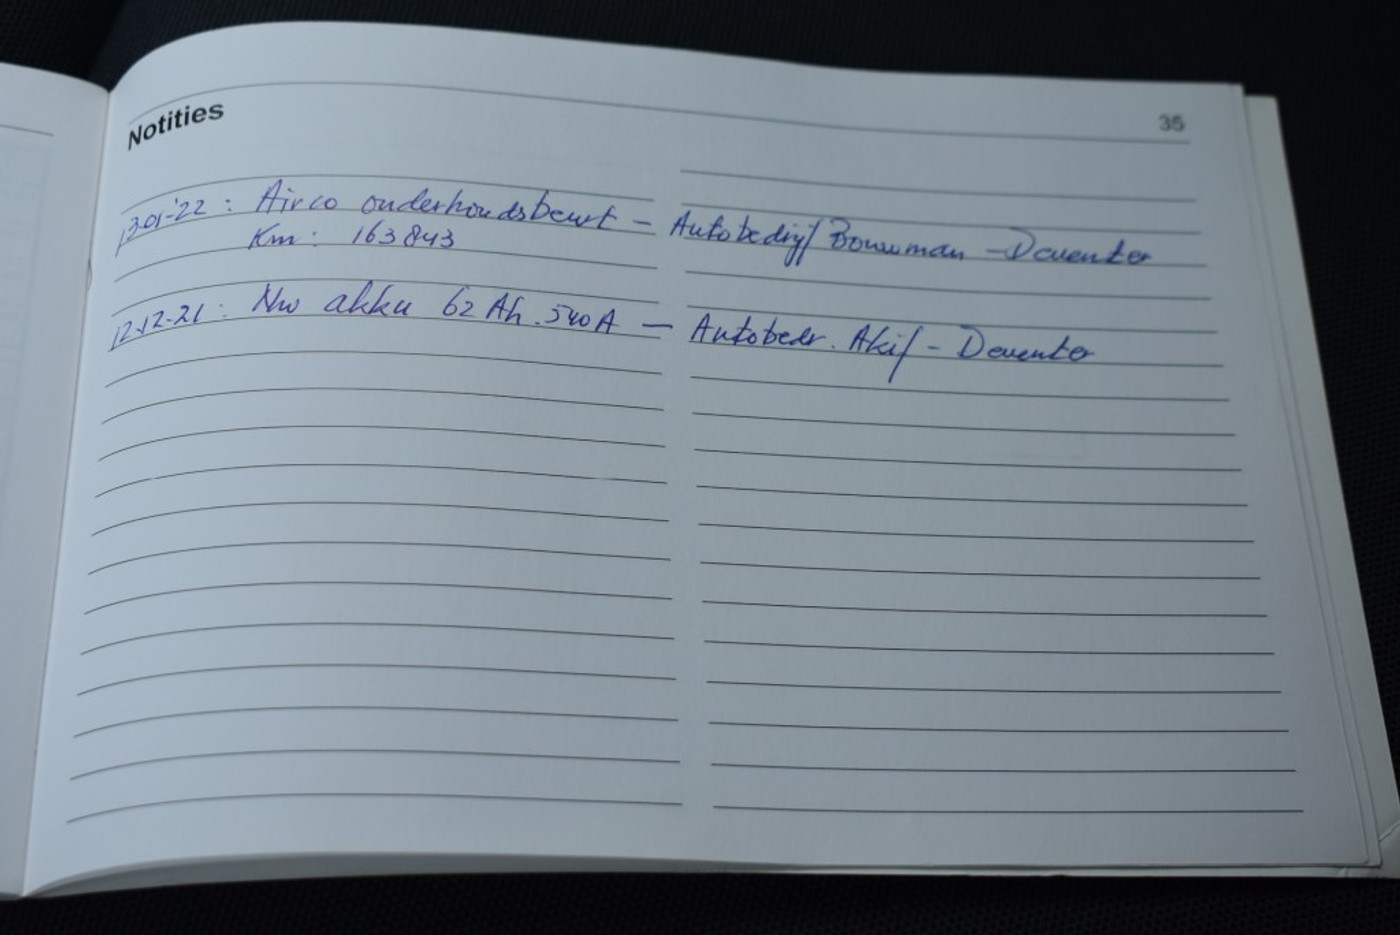 Notities
35
13-01-'22 : Airco onderhoudsbeurt - Autobedrijf Bouwman - Deventer
Km: 163843
12-12-21 : Nw akku 62 Ah. 540A - Autobedr. Akif - Deventer